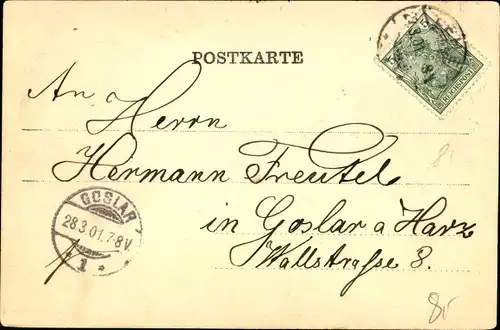 POSTKARTE
REICHSPOST
An
Herrn
Hermann Freutel
GOSLAR
28.3.01.7-8V.
1 *
in Goslar a Harz
Wallstrasse 8.
8,-
8,-